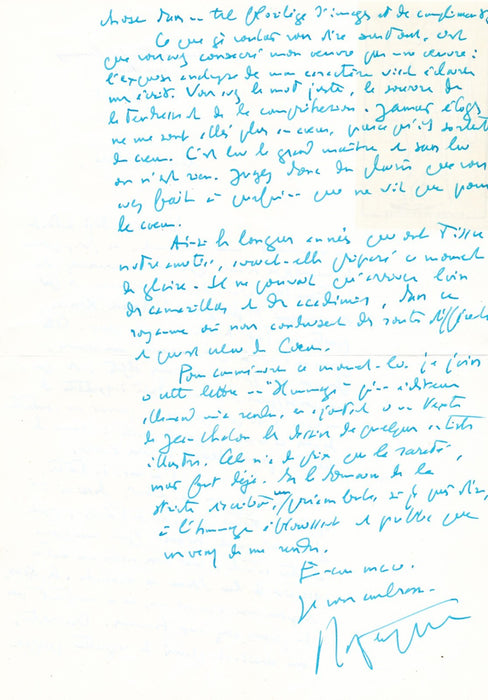 dans un tel florilège d'images et de compliments.
Ce que je voulais vous dire surtout, c'est
que vous avez consacré mon œuvre par une œuvre :
l'exquise analyse de mon caractère vient éclairer
mes écrits. Vous avez le mot juste, le sourire de
la tendresse et de la compréhension. Jamais éloges
ne me sont allés plus au cœur, parce qu'ils sortent
du cœur. C'est lui le grand maître et sans lui
on n'est rien. Jugez donc du plaisir que vous
avez fait à quelqu'un qui ne vit que pour
le cœur.
Ainsi les longues années qui ont tissé
notre amitié, préparé ce moment
de gloire. Il ne pouvait qu'arriver loin
des camarillas et des académies, dans ce
royaume où nous conduisent des routes différentes
et qui est celui du Cœur.
Pour commémorer ce moment-là, je joins
à cette lettre un "Hommage" qu'un éditeur
allemand m'a rendu, en ajoutant à un texte
de Jean Chalon les dessins de quelques artistes
illustres. Cela n'a de prix que la rareté,
mais c'est déjà. Dans le domaine de la
stricte
à l'hommage éblouissant et public que
vous venez de me rendre.
Encore merci.
Je vous embrasse.